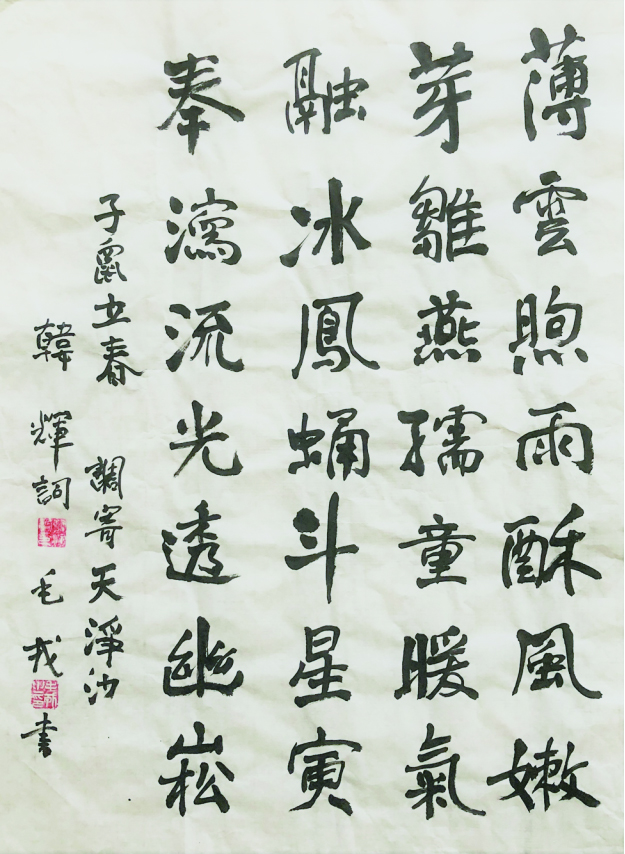 薄雲煦雨酥風嫩
芽雛燕孺童暖氣
融冰鳳蛹斗星寅
奉瀉流光透幽崧
子鼠立春 調寄天淨沙
韓輝詞 毛戎書